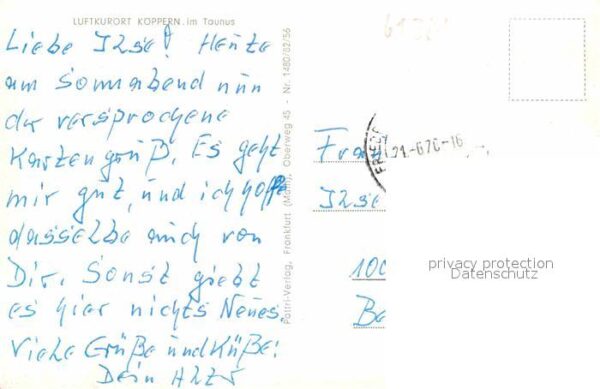 LUFTKURORT KÖPPERN im Taunus
Liebe Ilse! Heute
am Sonnabend nun
der versprochene
Kartengruß. Es geht
mir gut, und ich hoffe
dasselbe auch von
Dir. Sonst giebt
es hier nichts Neues.
Viele Grüße und Küße!
Dein
Pattri-Verlag, Frankfurt (Main), Oberweg 45 - Nr. 1480/82/56
FRIED
21.-6.76-16
Frau
Ilse
100
Be
privacy protection
Datenschutz